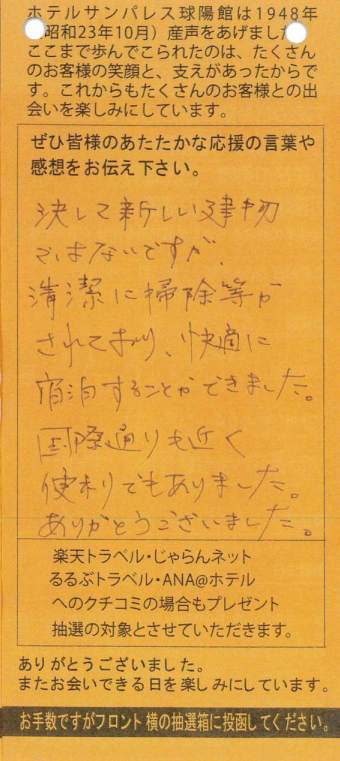 ホテルサンパレス球陽館は1948年
昭和23年10月）産声をあげました
ここまで歩んでこられたのは、たくさん
のお客様の笑顔と、支えがあったからで
す。これからもたくさんのお客様との出
会いを楽しみにしています。
ぜひ皆様のあたたかな応援の言葉や
感想をお伝え下さい。
決して新しい建物
ではないですが、
清潔に掃除等が
されており、快適に
宿泊することができました。
国際通りも近く
便利でもありました。
ありがとうございました。
楽天トラベル・じゃらんネット
るるぶトラベル・ANA@ホテル
へのクチコミの場合もプレゼント
抽選の対象とさせていただきます。
ありがとうございました。
またお会いできる日を楽しみにしています。
お手数ですがフロント横の抽選箱に投函してください。